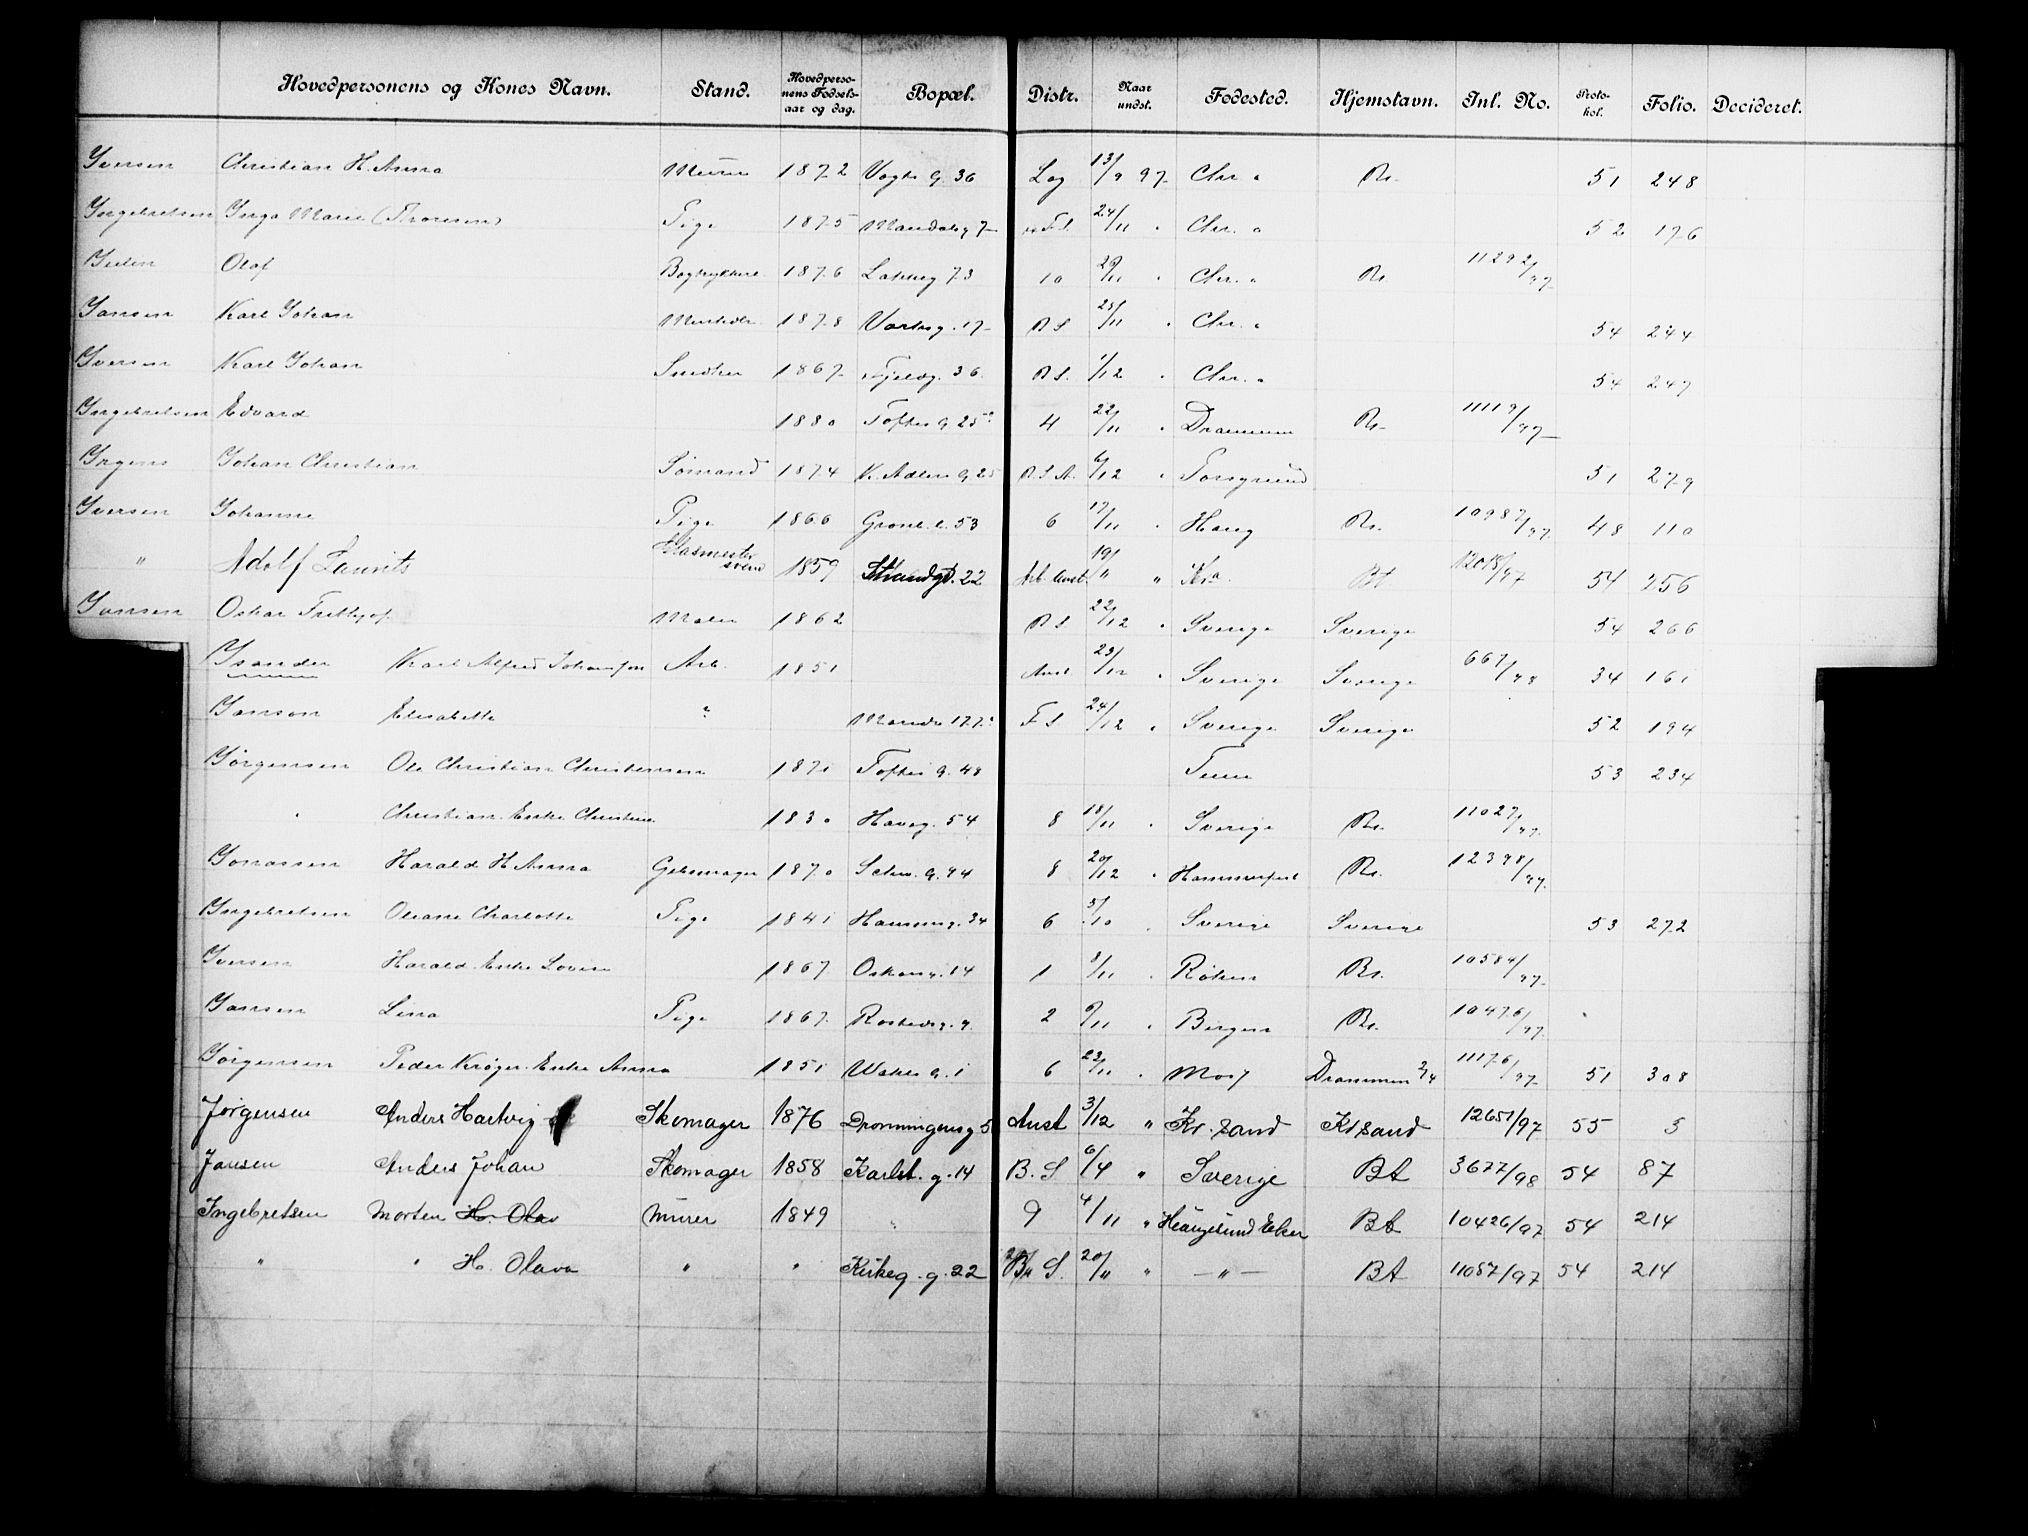 Hovedpersonens og Kones Navn. Stand. Hovedpersonens Fødselsaar og dag. Bopæl. Distr. Naar undst. Fødested. Hjemstavn. Inl. No. Protokol. Folio. Decideret.
Iversen Christian H. Anna Murer 1872 Vogts g. 36 Log 13/9 97 Chr a Bt. 51 248
Ingebretsen Inga Marie (Thoresen) Pige 1875 Mandalsg 7 24/11 " Chr. a 52 176
Olaf 1876 Lakkeg 73 10 29/11 " Chr. a Bt. 11292/97
Jansen Karl Johan 1878 17 B S 25/11 " Chr. a 54 244
Iversen Karl Johan Snedker 1867 36. B S. 1/12 " Chr. a 54 247
Ingebretsen Edvard 1880 Toftes g. 25 4 22/11 " Drammen Bt. 11119/97
Irgens Johan Christian Sømand 1874 K. Adlers g. 25 B. S. A. 6/12 " Porsgrund 51 279
Iversen Johanne Pige 1866 Grønl. l. 53 6 17/11 " Haug Bt. 10987/97 48 110
" Adolf Laurits Glasmester svend 1859 Strandgd. 22 Arb. Anst. 19/" " Kra. Bt 12018/97 54 256
Jansen Oskar Frithjof Maler 1862 B S 22/12 " Sverige Sverige 54 266
Isander Karl Alfred Johansson Arb. 1851 Anst 23/12 " Sverige Sverige 667/98 34 161
Janson Elisabeth " F S 24/12 " Sverige Sverige 52 194
Jörgensen Ole Christian Christensen 1871 Toftes g. 48 53 234
" Christian. Enke Christine 1830 Haveg. 54 8 18/11 " Sverige Bt. 11027/97.
Jonassen Harald H. Anna 1870 Schw. g. 44 8 20/12 " Hammerfest Bt. 12398/97.
Ingebretsen Oleane Charlotte Pige 1841 Hausmg. 34 6 5/10 " Sverige Sverige 53 272
Iversen Harald. Enke Lovise 1867. Oskarsg. 14 1 8/11 " Röken Bt. 10584/97
Jansen Lina Pige 1867. Rostedsg. 9. 2 9/11 " Bergen Bt. 10476/97.
Jörgensen Peder Kröger. Enke Anna 1851 Waters g. 1 6 22/11 " Moss Drammen 2/4 11176/97 51 308
Jørgensen Anders Hartvig Skomager 1876 Dronningensg 5 Anst 3/12 " Kr. sand Krsand 12651/97 55 5
Jansen Anders Johan Skomager 1858 Karlst. g. 14 B. S 6/4 " Sverige Bt 3677/98 54 87
Ingebretsen Morten H. Olav Murer 1849 " 9 4/11 " Haugesund Eker Bt 10426/97 54 214
" " H. Olava " " Kirkeg. g. 22 B. S. 20/11 " — " — Bt 11087/97 54 214